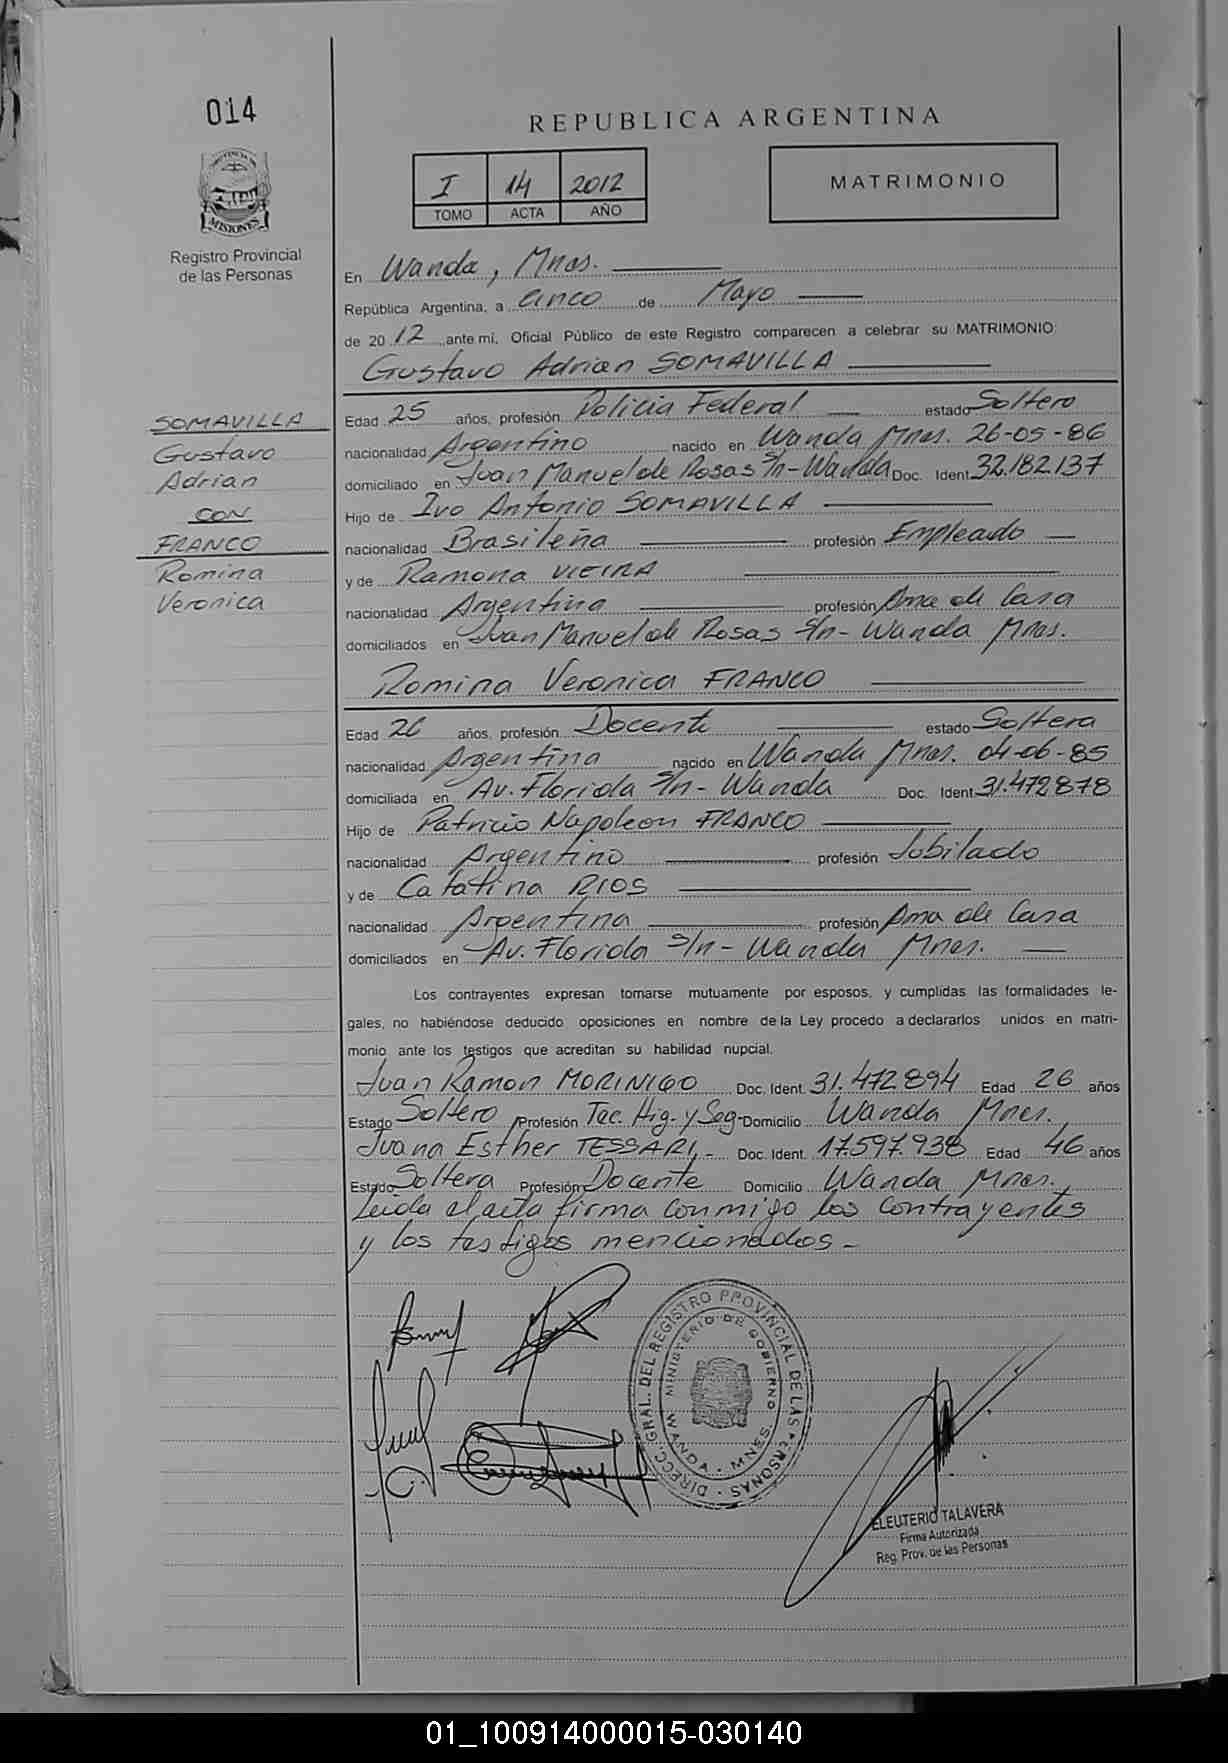 014
REPUBLICA ARGENTINA
I 14 2012
TOMO ACTA AÑO
MATRIMONIO
PROVINCIA DE
MISIONES
Registro Provincial
de las Personas
En Wanda, Mnes.
República Argentina, a cinco de Mayo
de 2012, ante mí, Oficial Público de este Registro comparecen a celebrar su MATRIMONIO:
Gustavo Adrian SOMAVILLA
SOMAVILLA
Gustavo
Adrian
CON
FRANCO
Romina
Veronica
Edad 25 años, profesión Policia Federal estado Soltero
nacionalidad Argentino nacido en Wanda Mnes. 26-05-86
domiciliado en Juan Manuel de Rosas S/n-Wanda Doc. Ident. 32.182.137
Hijo de Ivo Antonio SOMAVILLA
nacionalidad Brasileña profesión Empleado
y de Ramona VIEIRA
nacionalidad Argentina profesión Ama de Casa
domiciliados en Juan Manuel de Rosas S/n-Wanda Mnes.
Romina Veronica FRANCO
Edad 26 años, profesión Docente estado Soltera
nacionalidad Argentina nacido en Wanda Mnes. 04-06-85
domiciliada en Av. Florida S/n-Wanda Doc. Ident. 31.472878
Hijo de Patricio Napoleon FRANCO
nacionalidad Argentino profesión Jubilado
y de Catatina RIOS
nacionalidad Argentina profesión Ama de Casa
domiciliados en Av. Florida S/n-Wanda Mnes.
Los contrayentes expresan tomarse mutuamente por esposos, y cumplidas las formalidades le-
gales, no habiéndose deducido oposiciones en nombre de la Ley procedo a declararlos unidos en matri-
monio ante los testigos que acreditan su habilidad nupcial.
Juan Ramon MORINIGO Doc. Ident. 31.472894 Edad 26 años
Estado Soltero Profesión Tec. Hig. y Seg- Domicilio Wanda Mnes.
Juana Esther TESSARI,- Doc. Ident. 17.597.938 Edad 46 años
Estado Soltera Profesión Docente Domicilio Wanda Mnes.
Leida el acta firma conmigo los contrayentes
y los testigos mencionados-
DIRECC. GRAL. DEL REGISTRO PROVINCIAL DE LAS PERSONAS
MINISTERIO DE GOBIERNO
WANDA - MNES.
ELEUTERIO TALAVERA
Firma Autorizada
Reg. Prov. de las Personas
01_100914000015-030140